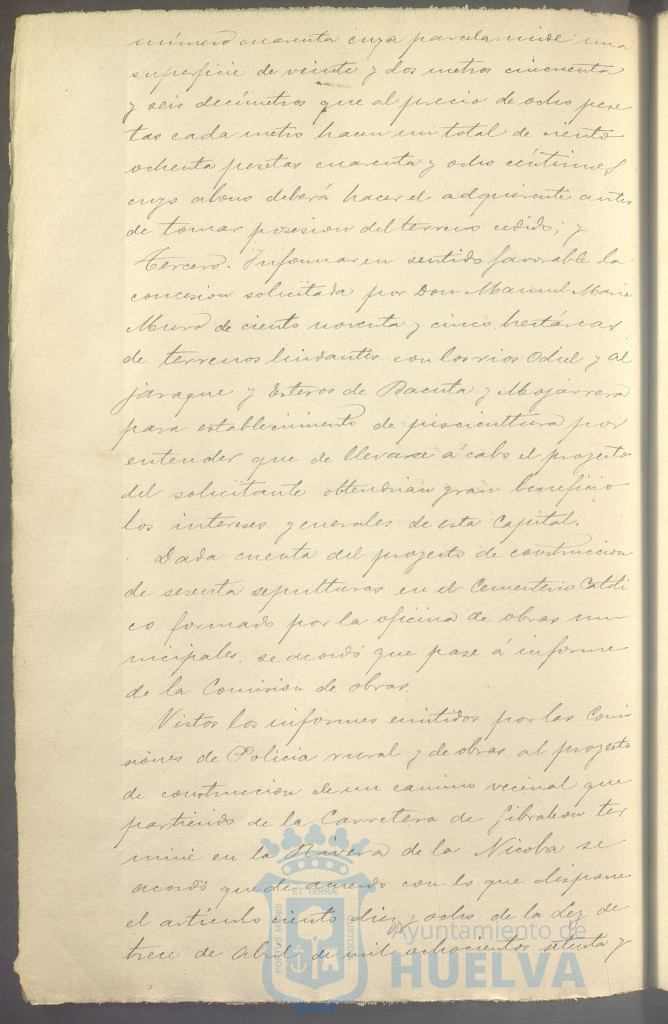 número cuarenta cuya parcela mide una
superficie de veinte y dos metros cincuenta
y seis decímetros que al precio de ocho pese
tas cada metro hacen un total de ciento
ochenta pesetas cuarenta y ocho céntimos
cuyo abono deberá hacer el adquirente antes
de tomar posesion del terreno cedido; y
Tercero. Informar en sentido favorable la
concesion solicitada por Don Manuel Maria
Mura de ciento noventa y cinco hectáreas
de terrenos lindantes con los rios Odiel y al
jaraque y Esteros de Bacuta y Mojarrera
para establecimiento de piscicultura por
entender que de llevarse á cabo el proyecto
del solicitante obtendrian gran beneficio
los intereses generales de esta Capital.
Dada cuenta del proyecto de construccion
de sesenta sepulturas en el Cementerio Católi
co formado por la oficina de obras mu
nicipales, se acordó que pase á informe
de la Comision de obras.
Vistos los informes emitidos por las Comi
siones de Policia rural y de obras al proyecto
de construccion de un camino vecinal que
partiendo de la Carretera de Gibraleon ter
mine en la Rivera de la Nicoba se
acordó que de acuerdo con lo que dispone
el artículo ciento diez y ocho de la Ley de
trece de Abril de mil ochocientos setenta y
PORTUS MARIS ET TERRÆ CUSTODIA
Ayuntamiento de
HUELVA